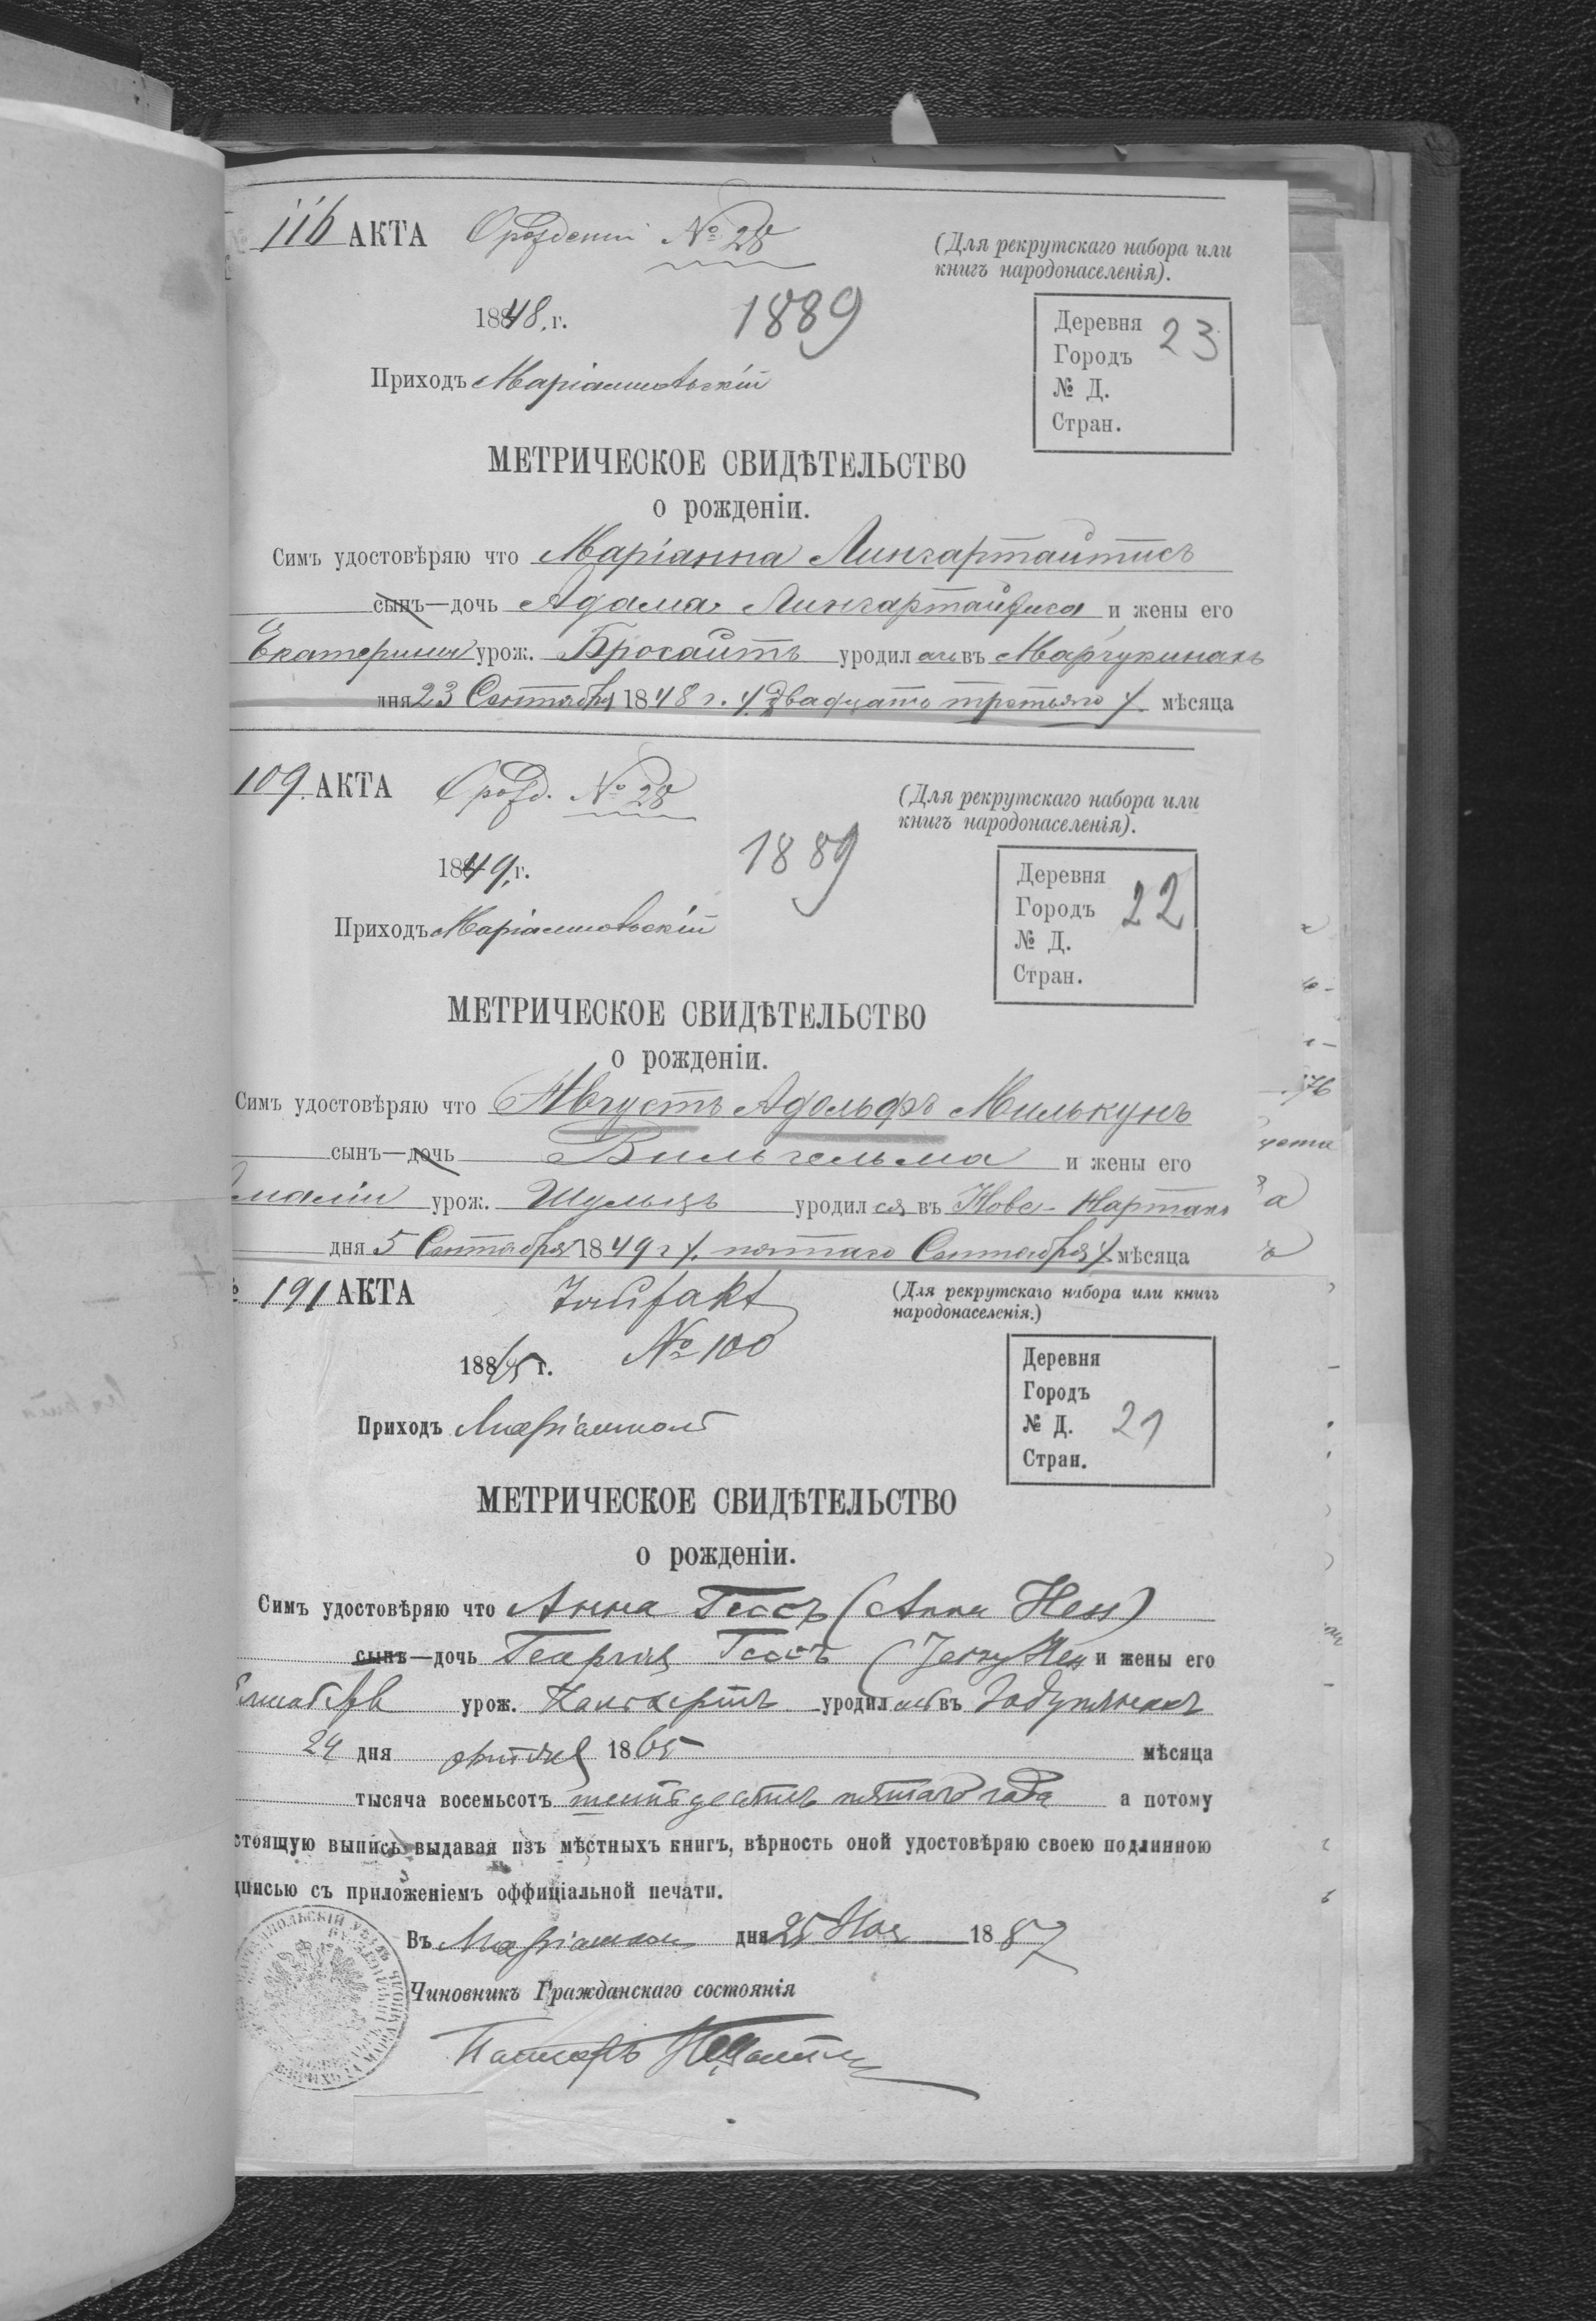 116 АКТА О рождении № 28
(Для рекрутскаго набора или
книгъ народонаселенія).
1848 г. 1889
Деревня 23
Городъ
№ Д.
Стран.
Приходъ Маріампольскій
МЕТРИЧЕСКОЕ СВИДѢТЕЛЬСТВО
о рожденіи.
Симъ удостовѣряю что Маріанна Лингартайтисъ
сынъ—дочь Адама Лингартайтиса и жены его
Екатерины урож. Бросайтъ уродилась въ
дня 23 Сентября 1848 г. двадцать третьяго мѣсяца
109 АКТА О рожд. № 28
(Для рекрутскаго набора или
книгъ народонаселенія).
1849 г. 1889
Деревня 22
Городъ
№ Д.
Стран.
Приходъ Маріампольскій
МЕТРИЧЕСКОЕ СВИДѢТЕЛЬСТВО
о рожденіи.
Симъ удостовѣряю что Августъ Адольфъ Милькунъ
сынъ—дочь Вильгельма и жены его
маліи урож. Шульцъ уродился въ Нове-
дня 5 Сентября 1849 г. пятаго Сентября мѣсяца
191 АКТА Taufakt
(Для рекрутскаго набора или книгъ
народонаселенія.)
1865 г. № 100
Деревня
Городъ
№ Д. 21
Стран.
Приходъ Маріамполь
МЕТРИЧЕСКОЕ СВИДѢТЕЛЬСТВО
о рожденіи.
Симъ удостовѣряю что Анна Гессъ (Anna Hess)
сынъ—дочь Георгія Гессъ и жены его
урож. уродилась въ
24 дня 1865 мѣсяца
тысяча восемьсотъ шестьдесятъ пятаго года а потому
стоящую выпись выдавая изъ мѣстныхъ книгъ, вѣрность оной удостовѣряю своею подлинною
дписью съ приложеніемъ оффиціальной печати.
Въ Маріамполь дня 25 Ноя 1887
Чиновникъ Гражданскаго состоянія
Пасторъ